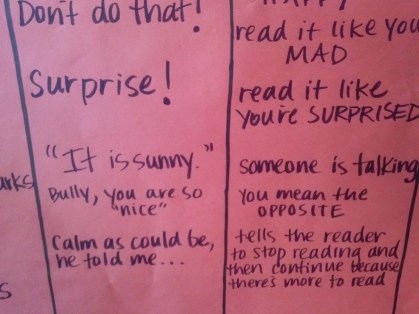 Don't do that!
read it like you
MAD
Surprise!
read it like
you're SURPRISED
arks
"It is sunny."
someone is talking
Bully, you are so
"nice"
You mean the
OPPOSITE
Calm as could be,
he told me...
tells the reader
to stop reading and
then continue because
there's more to read
s